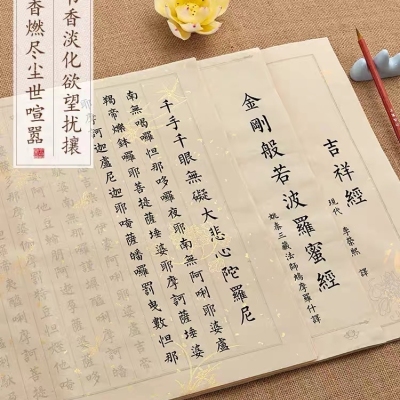 吉祥經
現代 李榮熙 譯
金剛般若波羅蜜經
姚秦三藏法師鳩摩羅什譯
千手千眼無礙大悲心陀羅尼
南無喝囉怛那哆囉夜耶南無阿唎耶婆盧
羯帝爍鉢囉耶菩提薩埵婆耶摩訶薩埵婆
耶摩訶迦盧尼迦耶唵薩皤囉罰曳數怛那
香淡化欲望扰攘
香燃尽尘世喧嚣